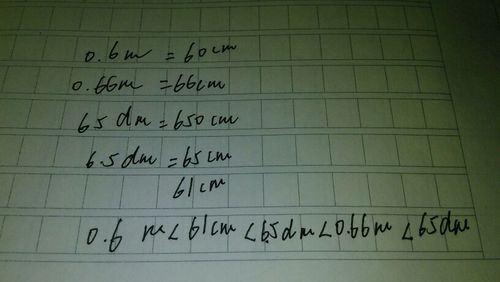 0.6m = 60cm
0.66m = 66cm
65dm = 650cm
6.5dm = 65cm
61cm
0.6 m < 61cm < 6.5dm < 0.66m < 65dm